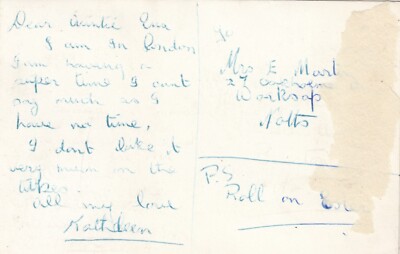 Dear Auntie Ena
I am in London
I am having a
super time I cant
say much as I
have no time,
I dont take it
very mean on the
all my love
Kathleen
To
Mrs E Mart
27
Worksop
Notts
P.S
Roll on